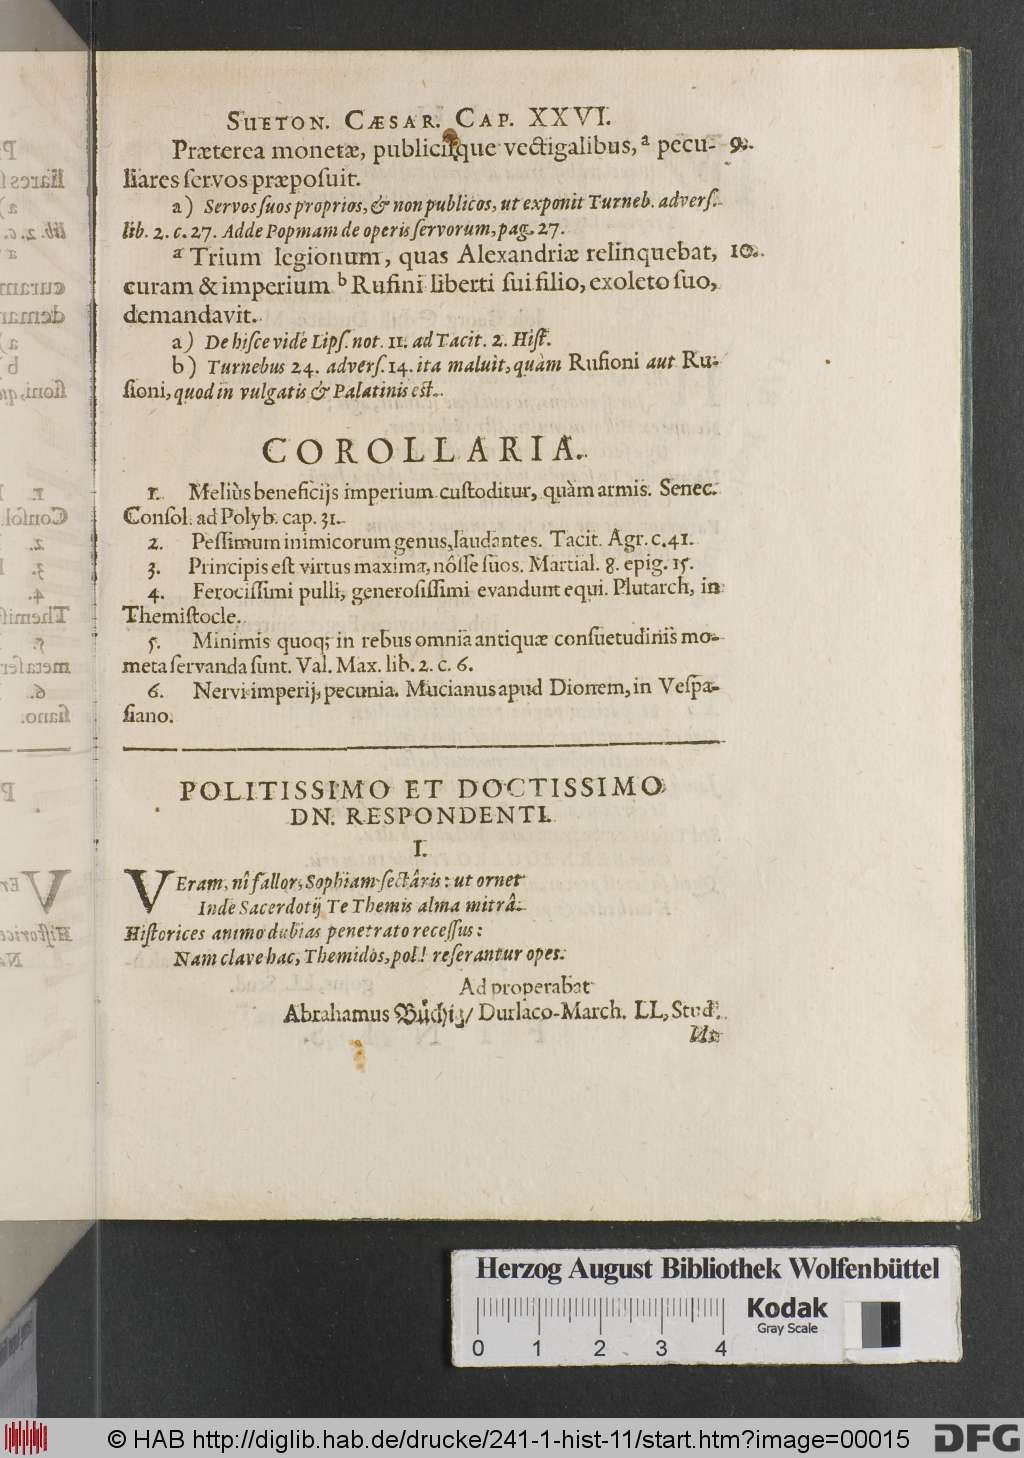 SUETON. CÆSAR. CAP. XXVI.
Præterea monetæ, publicisque vectigalibus, ᵃ pecu- 9.
liares servos præposuit.
a) Servos suos proprios, & non publicos, ut exponit Turneb. advers.
lib. 2. c. 27. Adde Popmam de operis servorum, pag. 27.
ᵃ Trium legionum, quas Alexandriæ relinquebat, 10.
curam & imperium ᵇ Rufini liberti sui filio, exoleto suo,
demandavit.
a) De hisce vide Lips. not. 11. ad Tacit. 2. Hist.
b) Turnebus 24. advers. 14. ita maluit, quàm Rusioni aut Ru-
sioni, quod in vulgatis & Palatinis est.
COROLLARIA.
1. Meliùs beneficijs imperium custoditur, quàm armis. Senec.
Consol. ad Polyb. cap. 31.
2. Pessimum inimicorum genus, laudantes. Tacit. Agr. c. 41.
3. Principis est virtus maxima, nôsse suos. Martial. 8. epig. 15.
4. Ferocissimi pulli, generosissimi evandunt equi. Plutarch, in
Themistocle.
5. Minimis quoq; in rebus omnia antiquæ consuetudinis mo-
meta servanda sunt. Val. Max. lib. 2. c. 6.
6. Nervi imperij, pecunia. Mucianus apud Dionem, in Vespa-
siano.
POLITISSIMO ET DOCTISSIMO
DN. RESPONDENTI.
I.
VEram, nî fallor, Sophiam sectâris: ut ornet
Inde Sacerdotij Te Themis alma mitrâ.
Historices animo dubias penetrato recessus:
Nam clave hac, Themidos, pol! reserantur opes.
Ad properabat
Abrahamus Büchig/ Durlaco-March. LL, Stud.
Herzog August Bibliothek Wolfenbüttel
Kodak
Gray Scale
0 1 2 3 4
© HAB http://diglib.hab.de/drucke/241-1-hist-11/start.htm?image=00015
DFG